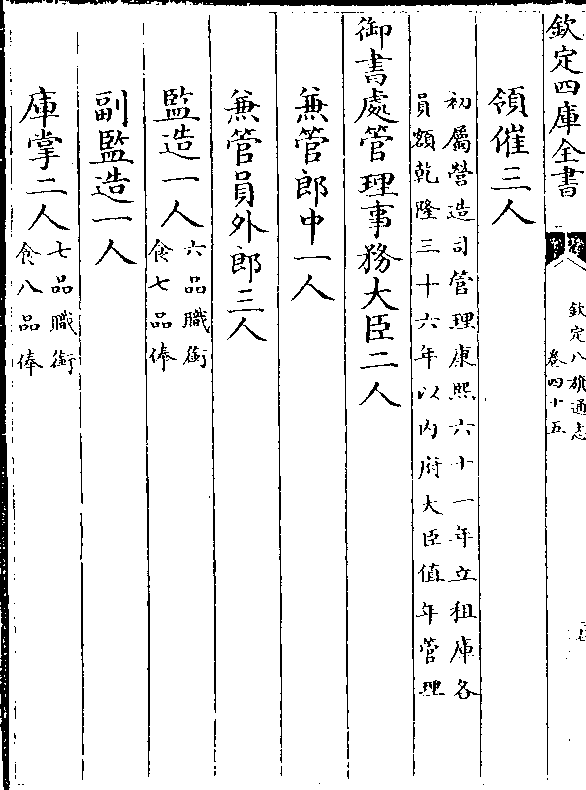 欽定四庫全書
欽定八旗通志
卷四十五
領催三人
初屬營造司管理康熙六十一年立租庫各
員額乾隆三十六年以内府大臣值年管理
御書處管理事務大臣二人
兼管郎中一人
兼管員外郎三人
監造一人
六品職銜
食七品俸
副監造一人
庫掌二人
七品職銜
食八品俸